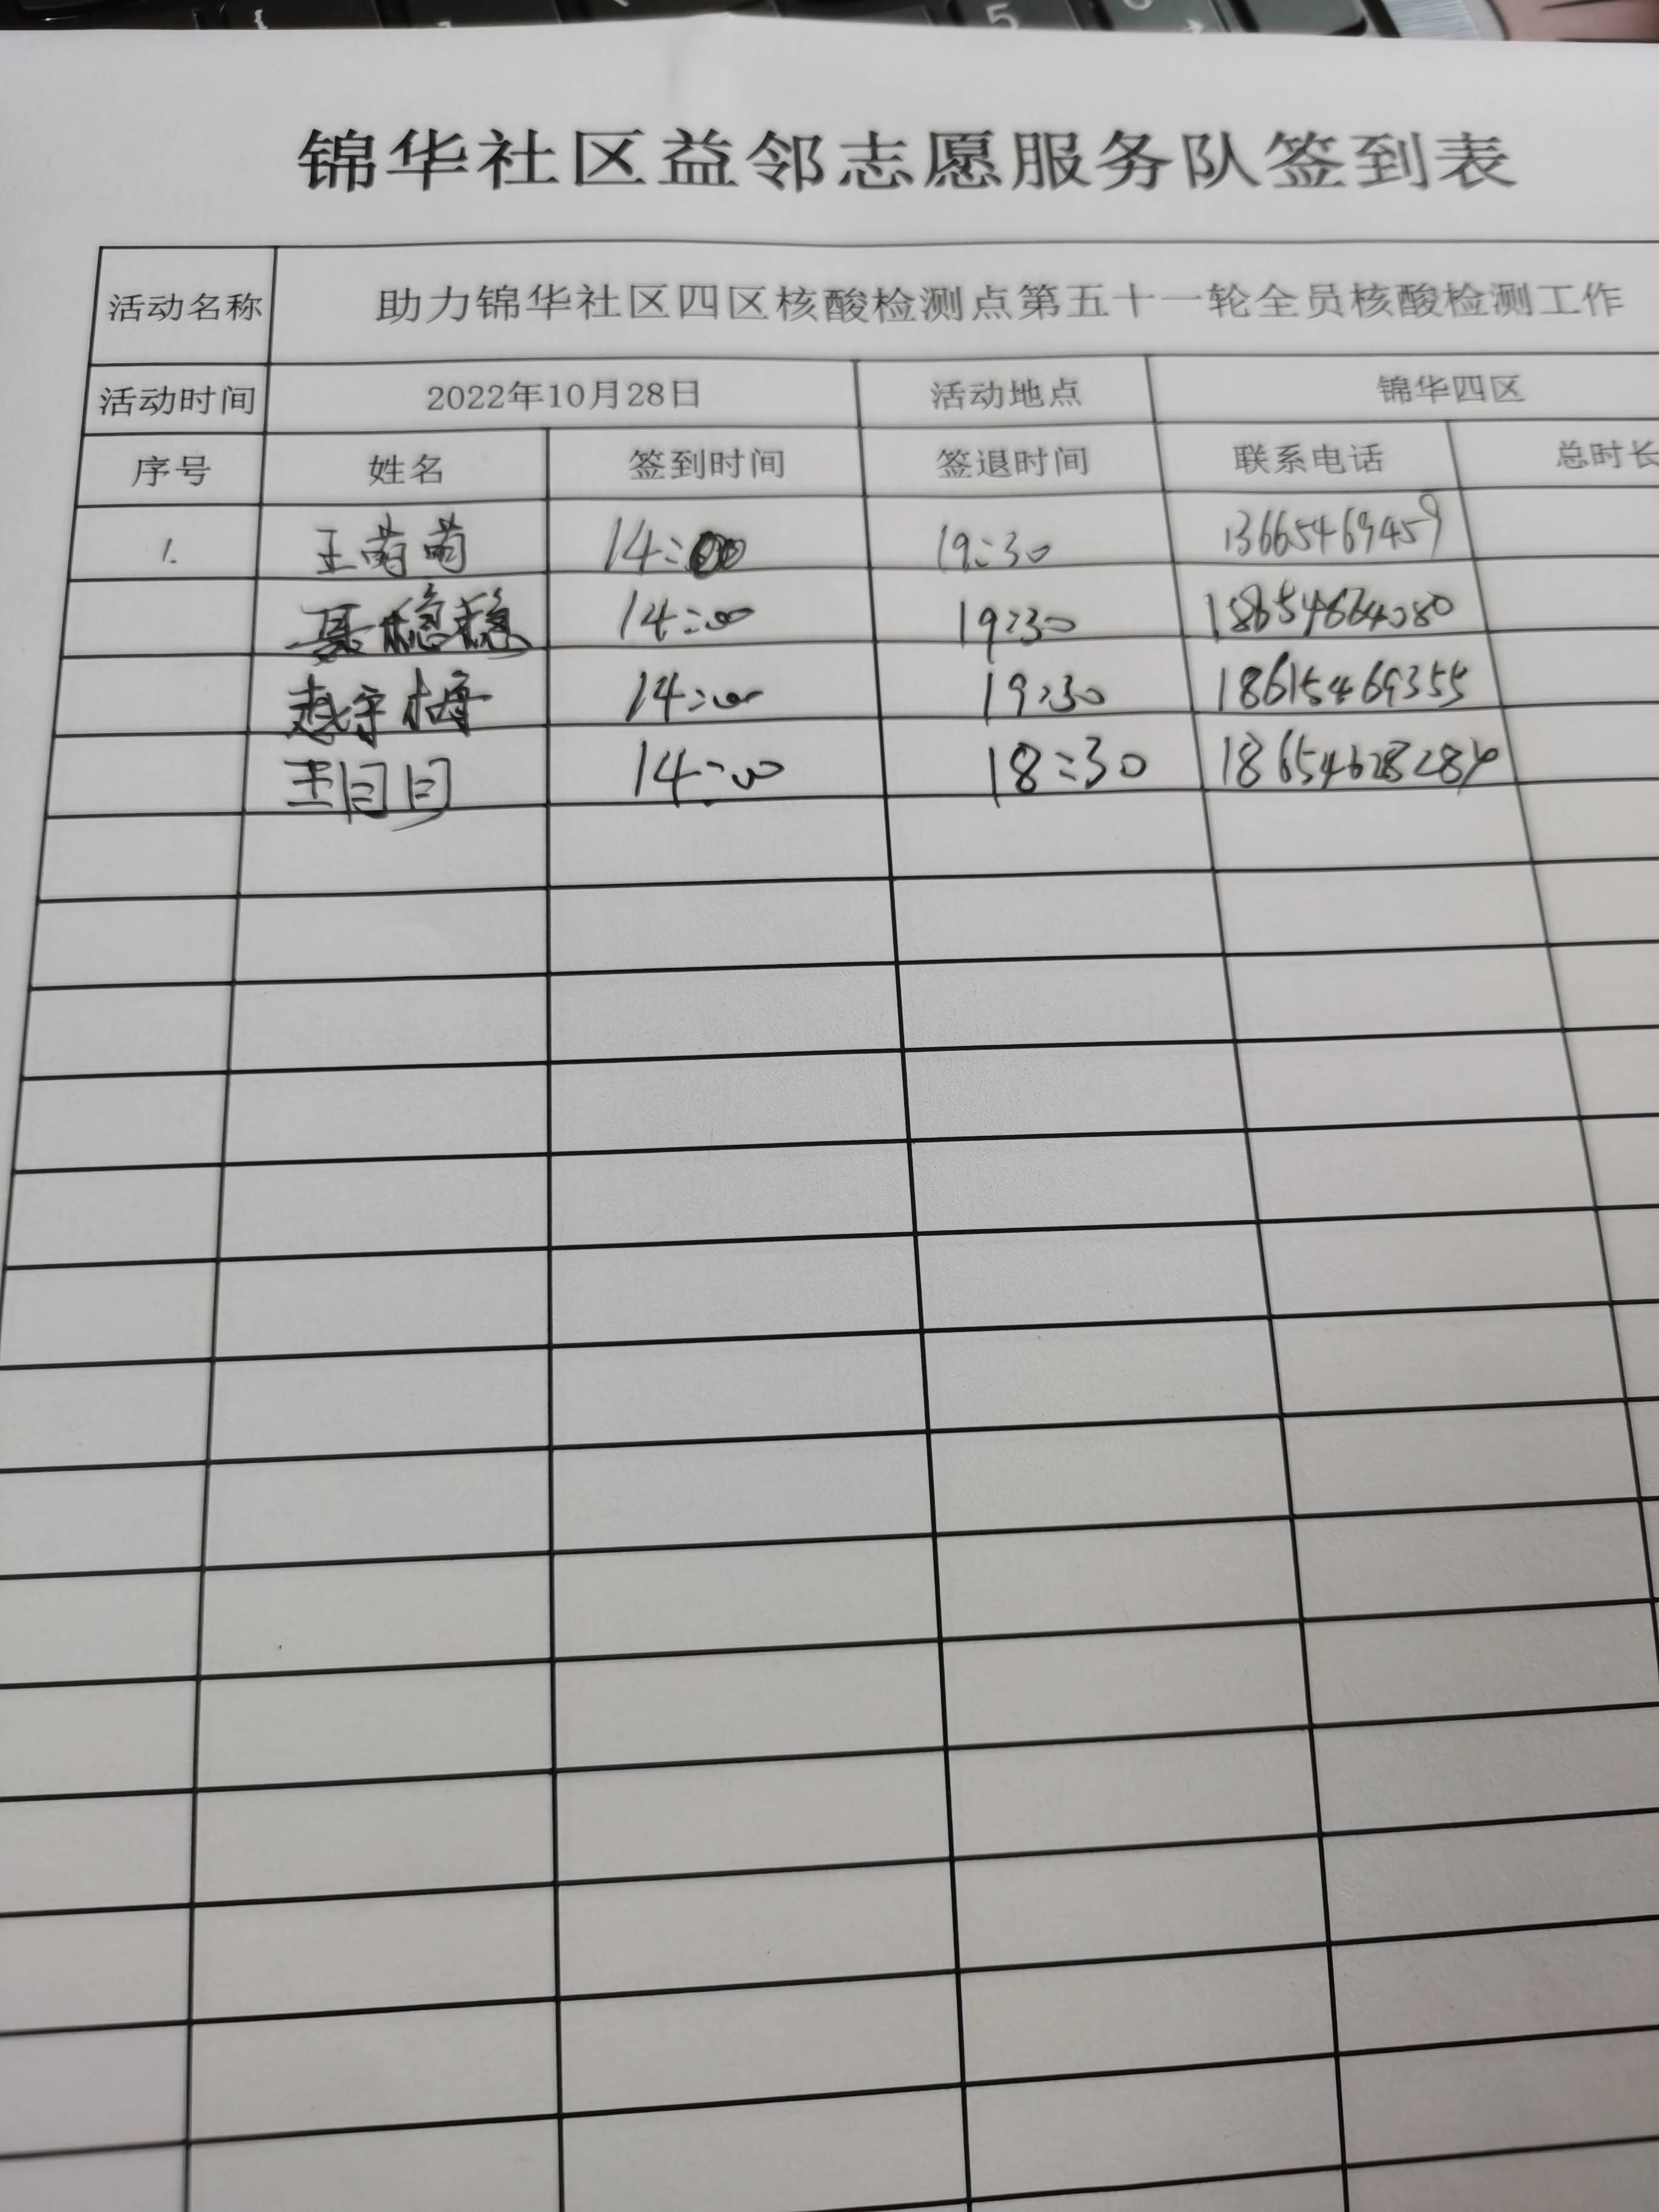 锦华社区益邻志愿服务队签到表
活动名称 助力锦华社区四区核酸检测点第五十一轮全员核酸检测工作
活动时间 2022年10月28日 活动地点 锦华四区
序号 姓名 签到时间 签退时间 联系电话 总时长
1. 王萌萌 14:00 19:30 13665469459
聂稳稳 14:00 19:30 18654664080
14:00 19:30 18615469355
14:00 18:30